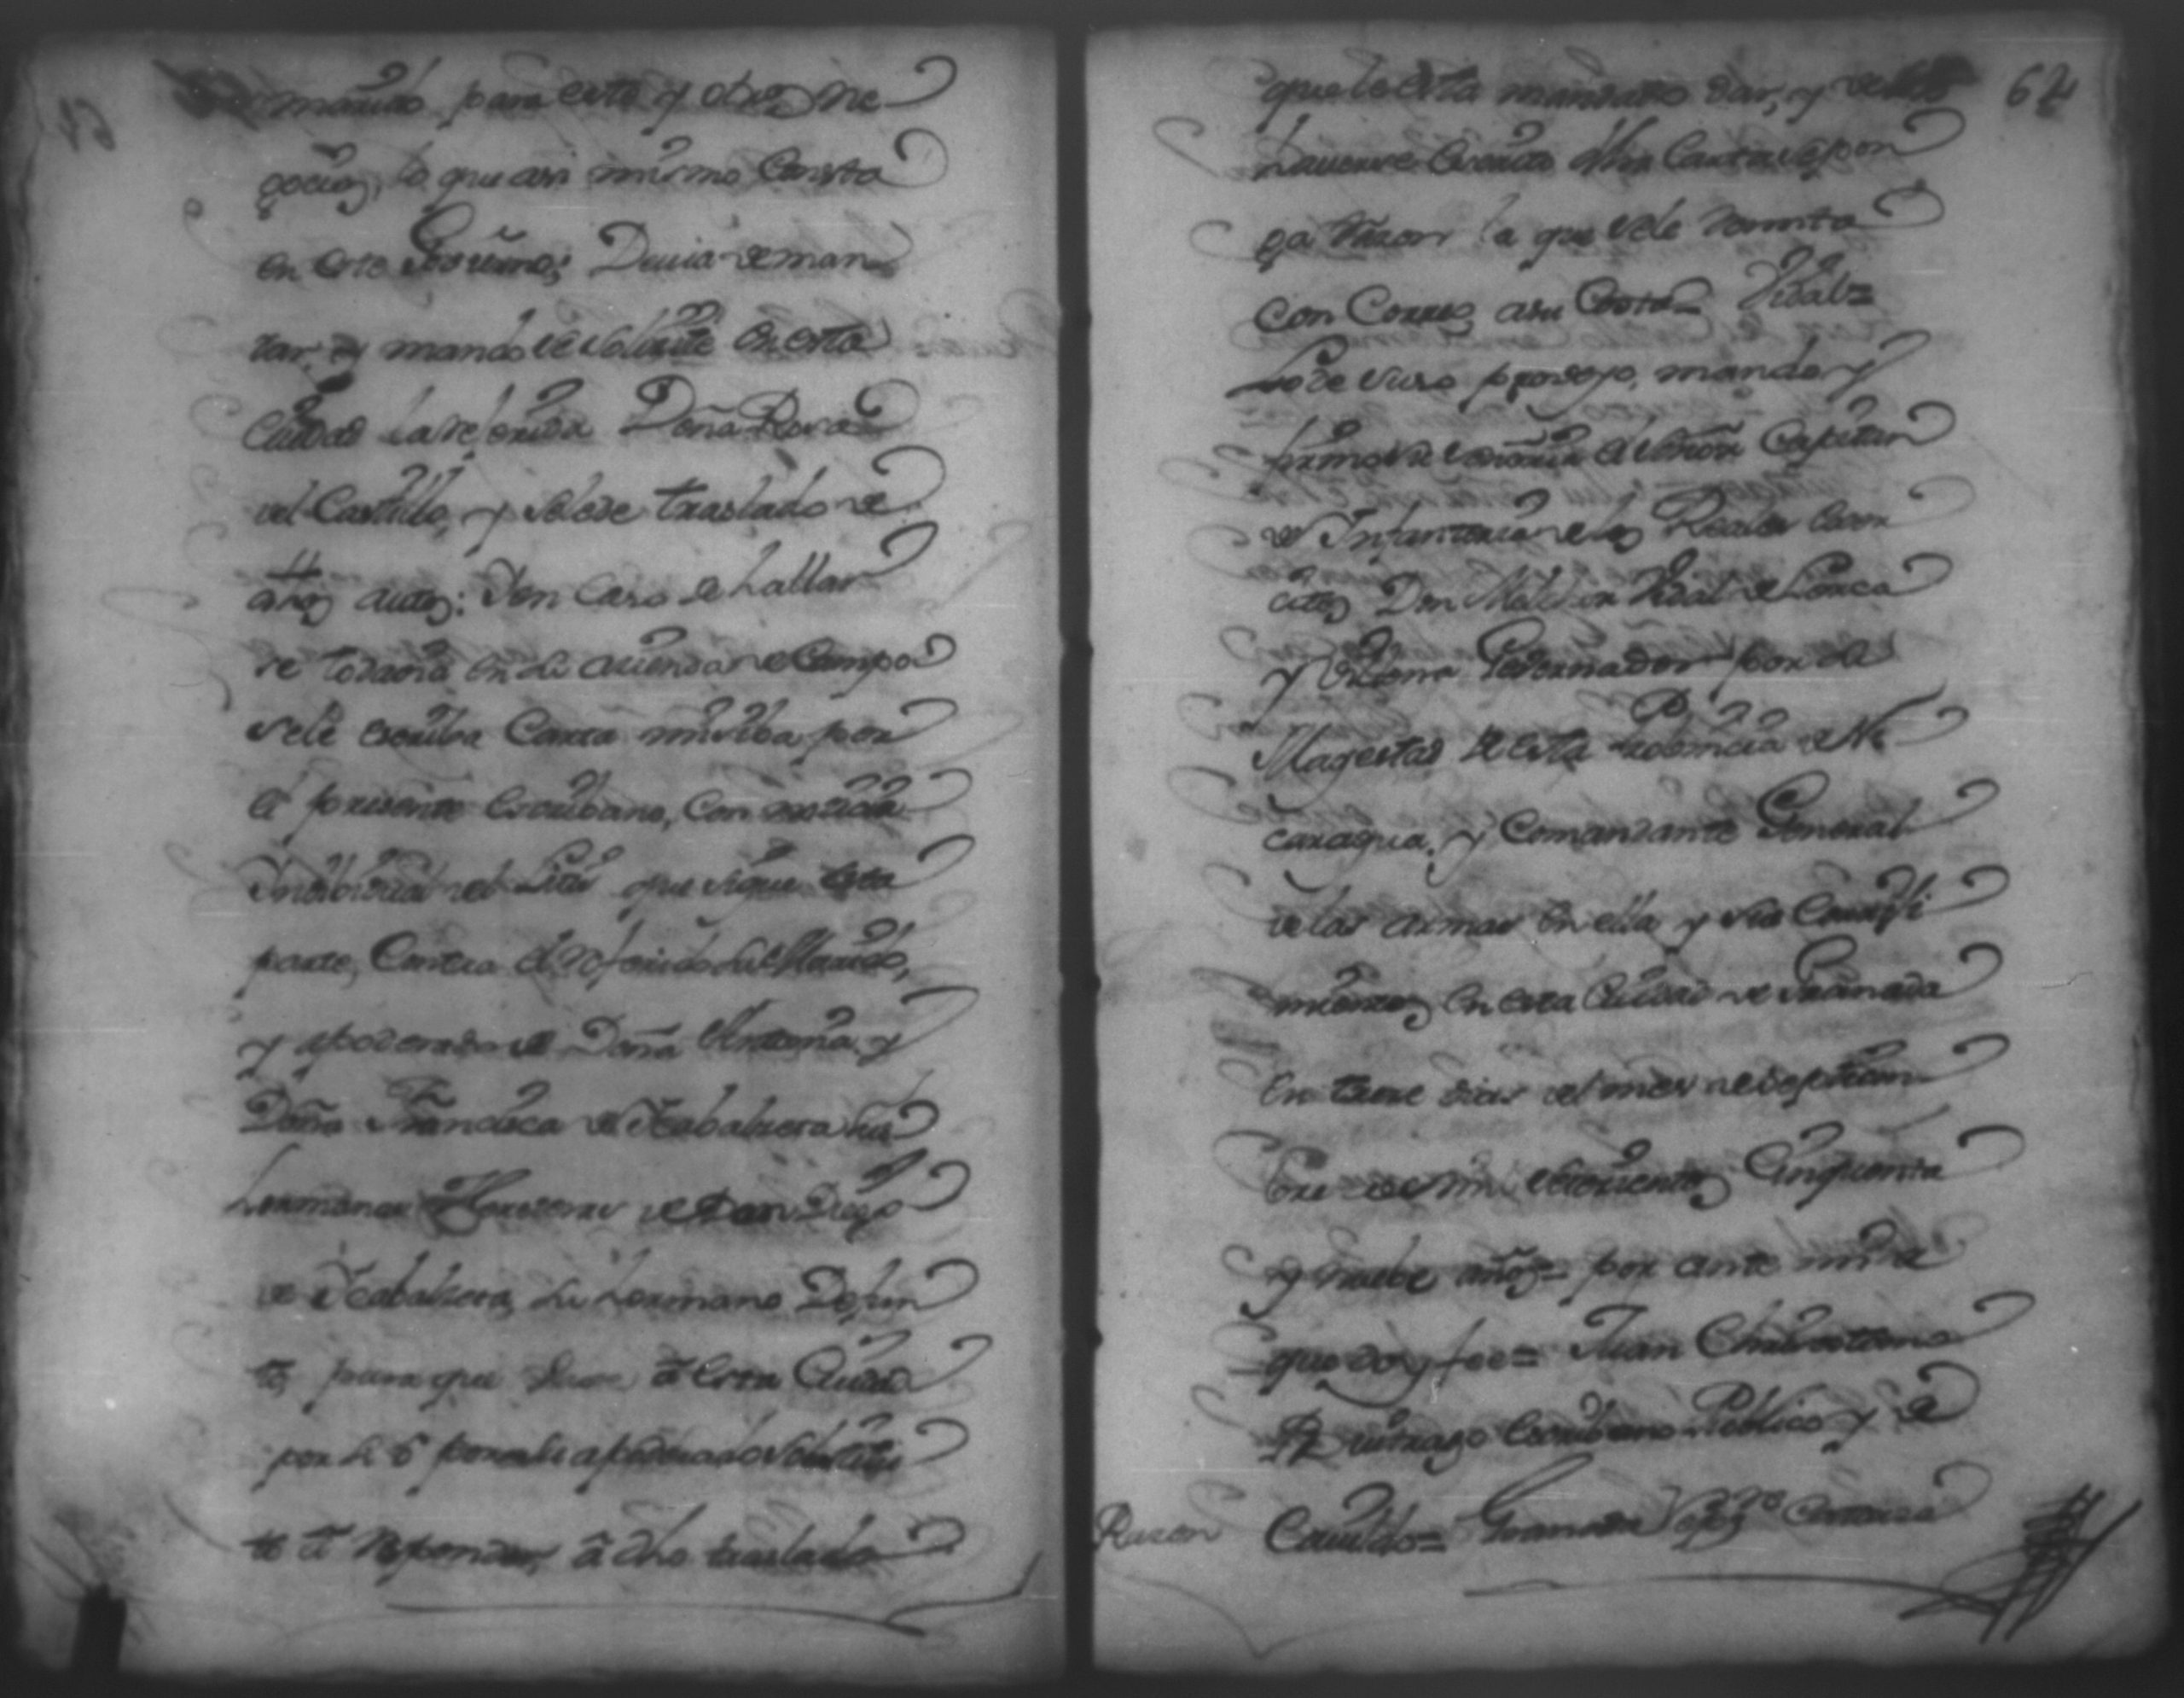 marido para este y otros ne
gocios, lo que assi mismo Consta
en este Govierno; Devia de man
dar, y mandó se solicite en esta
Ciudad la referida Doña Rosa
del Castillo, y se le de traslado de
dhos autos: Y en caso de hallar
se todavia en su acienda de Campo
se le escriba Carta misiba por
el presente Escribano, con noticia
Individual del Litis que sigue esta
parte, Contra el referido su Marido,
y apoderado de Doña Antonia, y
Doña Francisca de Icabalzeta sus
hermanas Herederas de Don Diego
de Icabalzeta, su hermano Defun
to, para que a esta Ciudad
por si ó por su apoderado
te á responder, á dho traslado
64
que le esta mandado dar, y de
haverse escrito dha Carta se pon
ga razon la que se le remita
con Correo a su Costa = Vidal =
Lo de suso proveyo, mando y
firmo su Señoria el Señor Capitan
de Infanteria de los Reales Exer
citos Don Melchor Vidal de Lorca
y Villena Governador por su
Magestad de esta Provincia de Ni
caragua, y Comandante General
de las armas en ella y sus Consfi
mientos en esta Ciudad de Granada
en trese dias del mes de Septiem
bre de mil setecientos Cinquenta
y nuebe años = por ante mi de
que doy fee = Juan
Buitrago Escribano Publico y de
Razon Cavildo = Granada